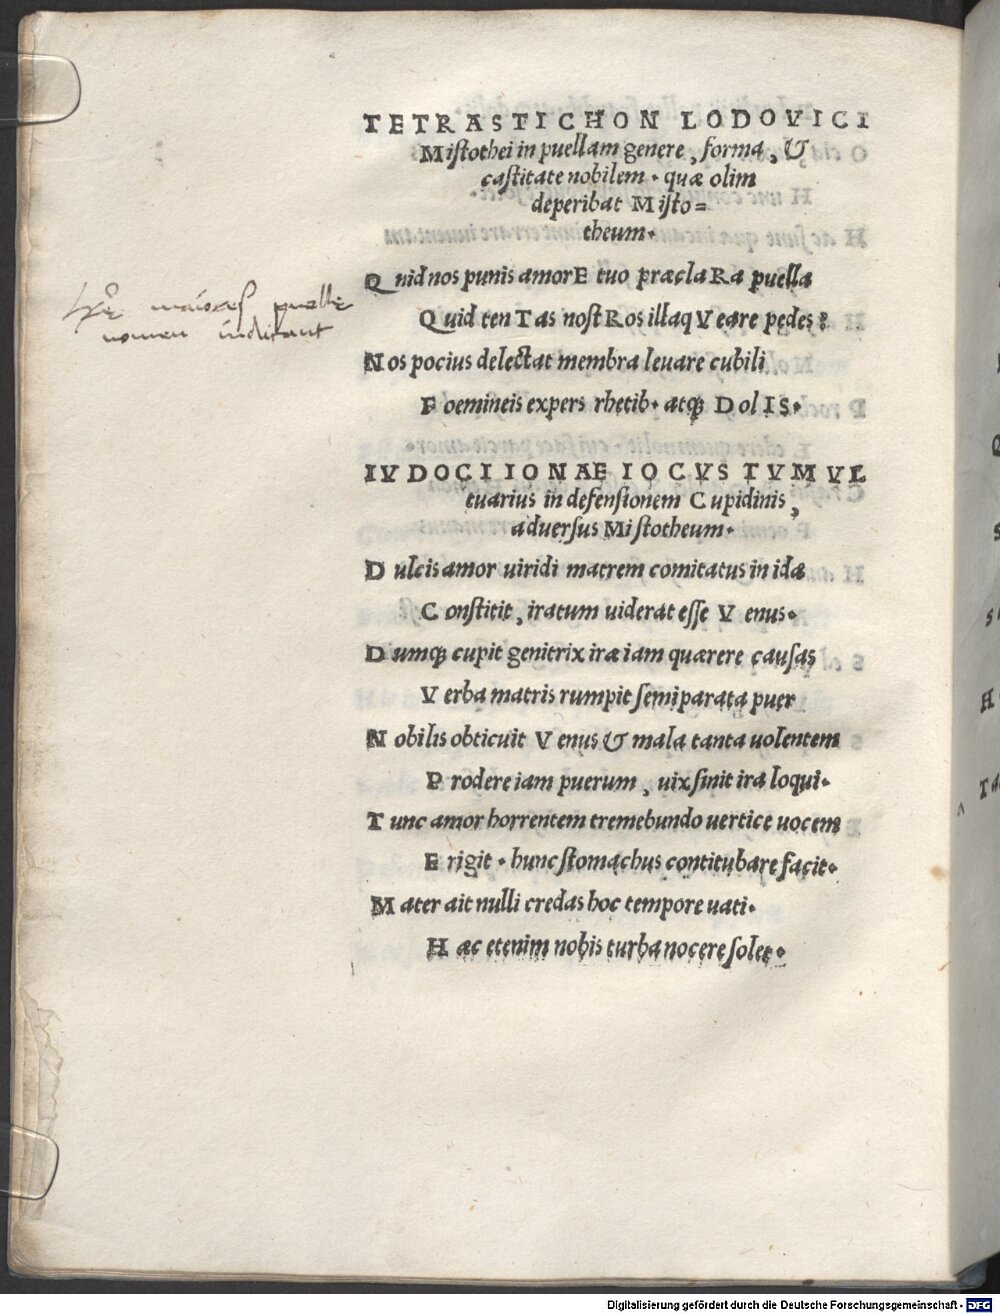 TETRASTICHON LODOVICI
Mistothei in puellam genere, forma, &
castitate nobilem. quæ olim
deperibat Misto=
theum.
Quid nos punis amorE tuo præclaRa puella
Quid tenTas nostRos illaqVeare pedes?
Nos pocius delectat membra leuare cubili
Foemineis expers rhetib. atqꝫ DolIS.
IVDOCI IONAE IOCVS TVMVL
tuarius in defensionem Cupidinis,
aduersus Mistotheum.
Dulcis amor uiridi matrem comitatus in ida
Constitit, iratum uiderat esse Venus.
Dumqꝫ cupit genitrix iræ iam quærere causas
Verba matris rumpit semiparata puer
Nobilis obticuit Venus & mala tanta uolentem
Prodere iam puerum, uix sinit ira loqui.
Tunc amor horrentem tremebundo uertice uocem
Erigit. hunc stomachus contitubare facit.
Mater ait nulli credas hoc tempore uati.
Hæc etenim nobis turba nocere solet.
maiores puelle
nomen indicant
Digitalisierung gefördert durch die Deutsche Forschungsgemeinschaft - DFG